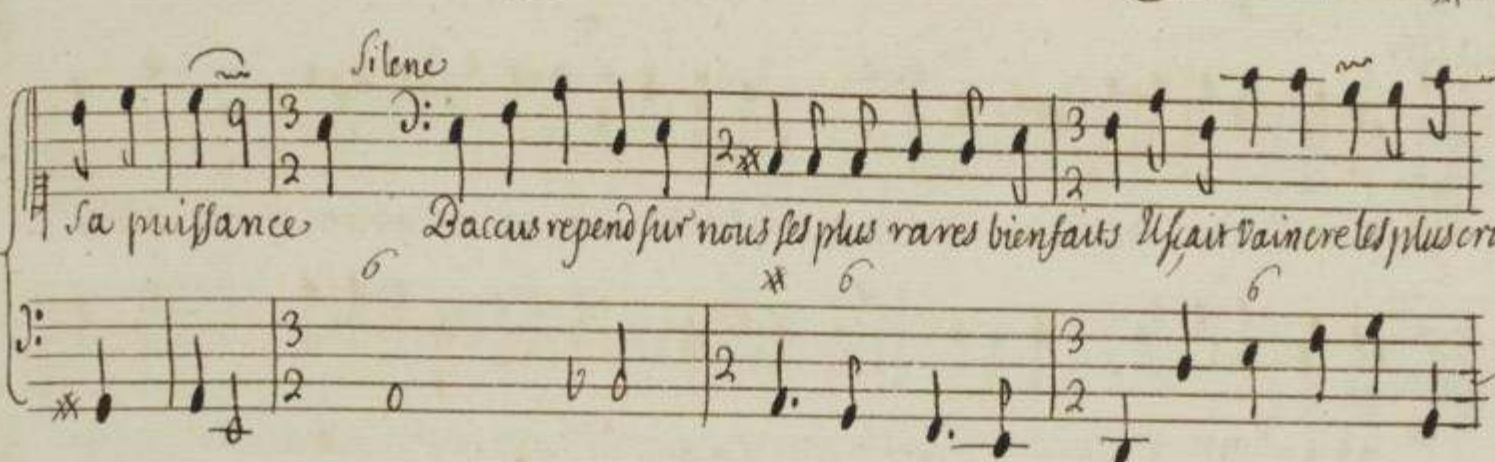 Silene
sa puissance Baccus repend sur nous ses plus rares bienfaits Il sçait vaincre les plus cru